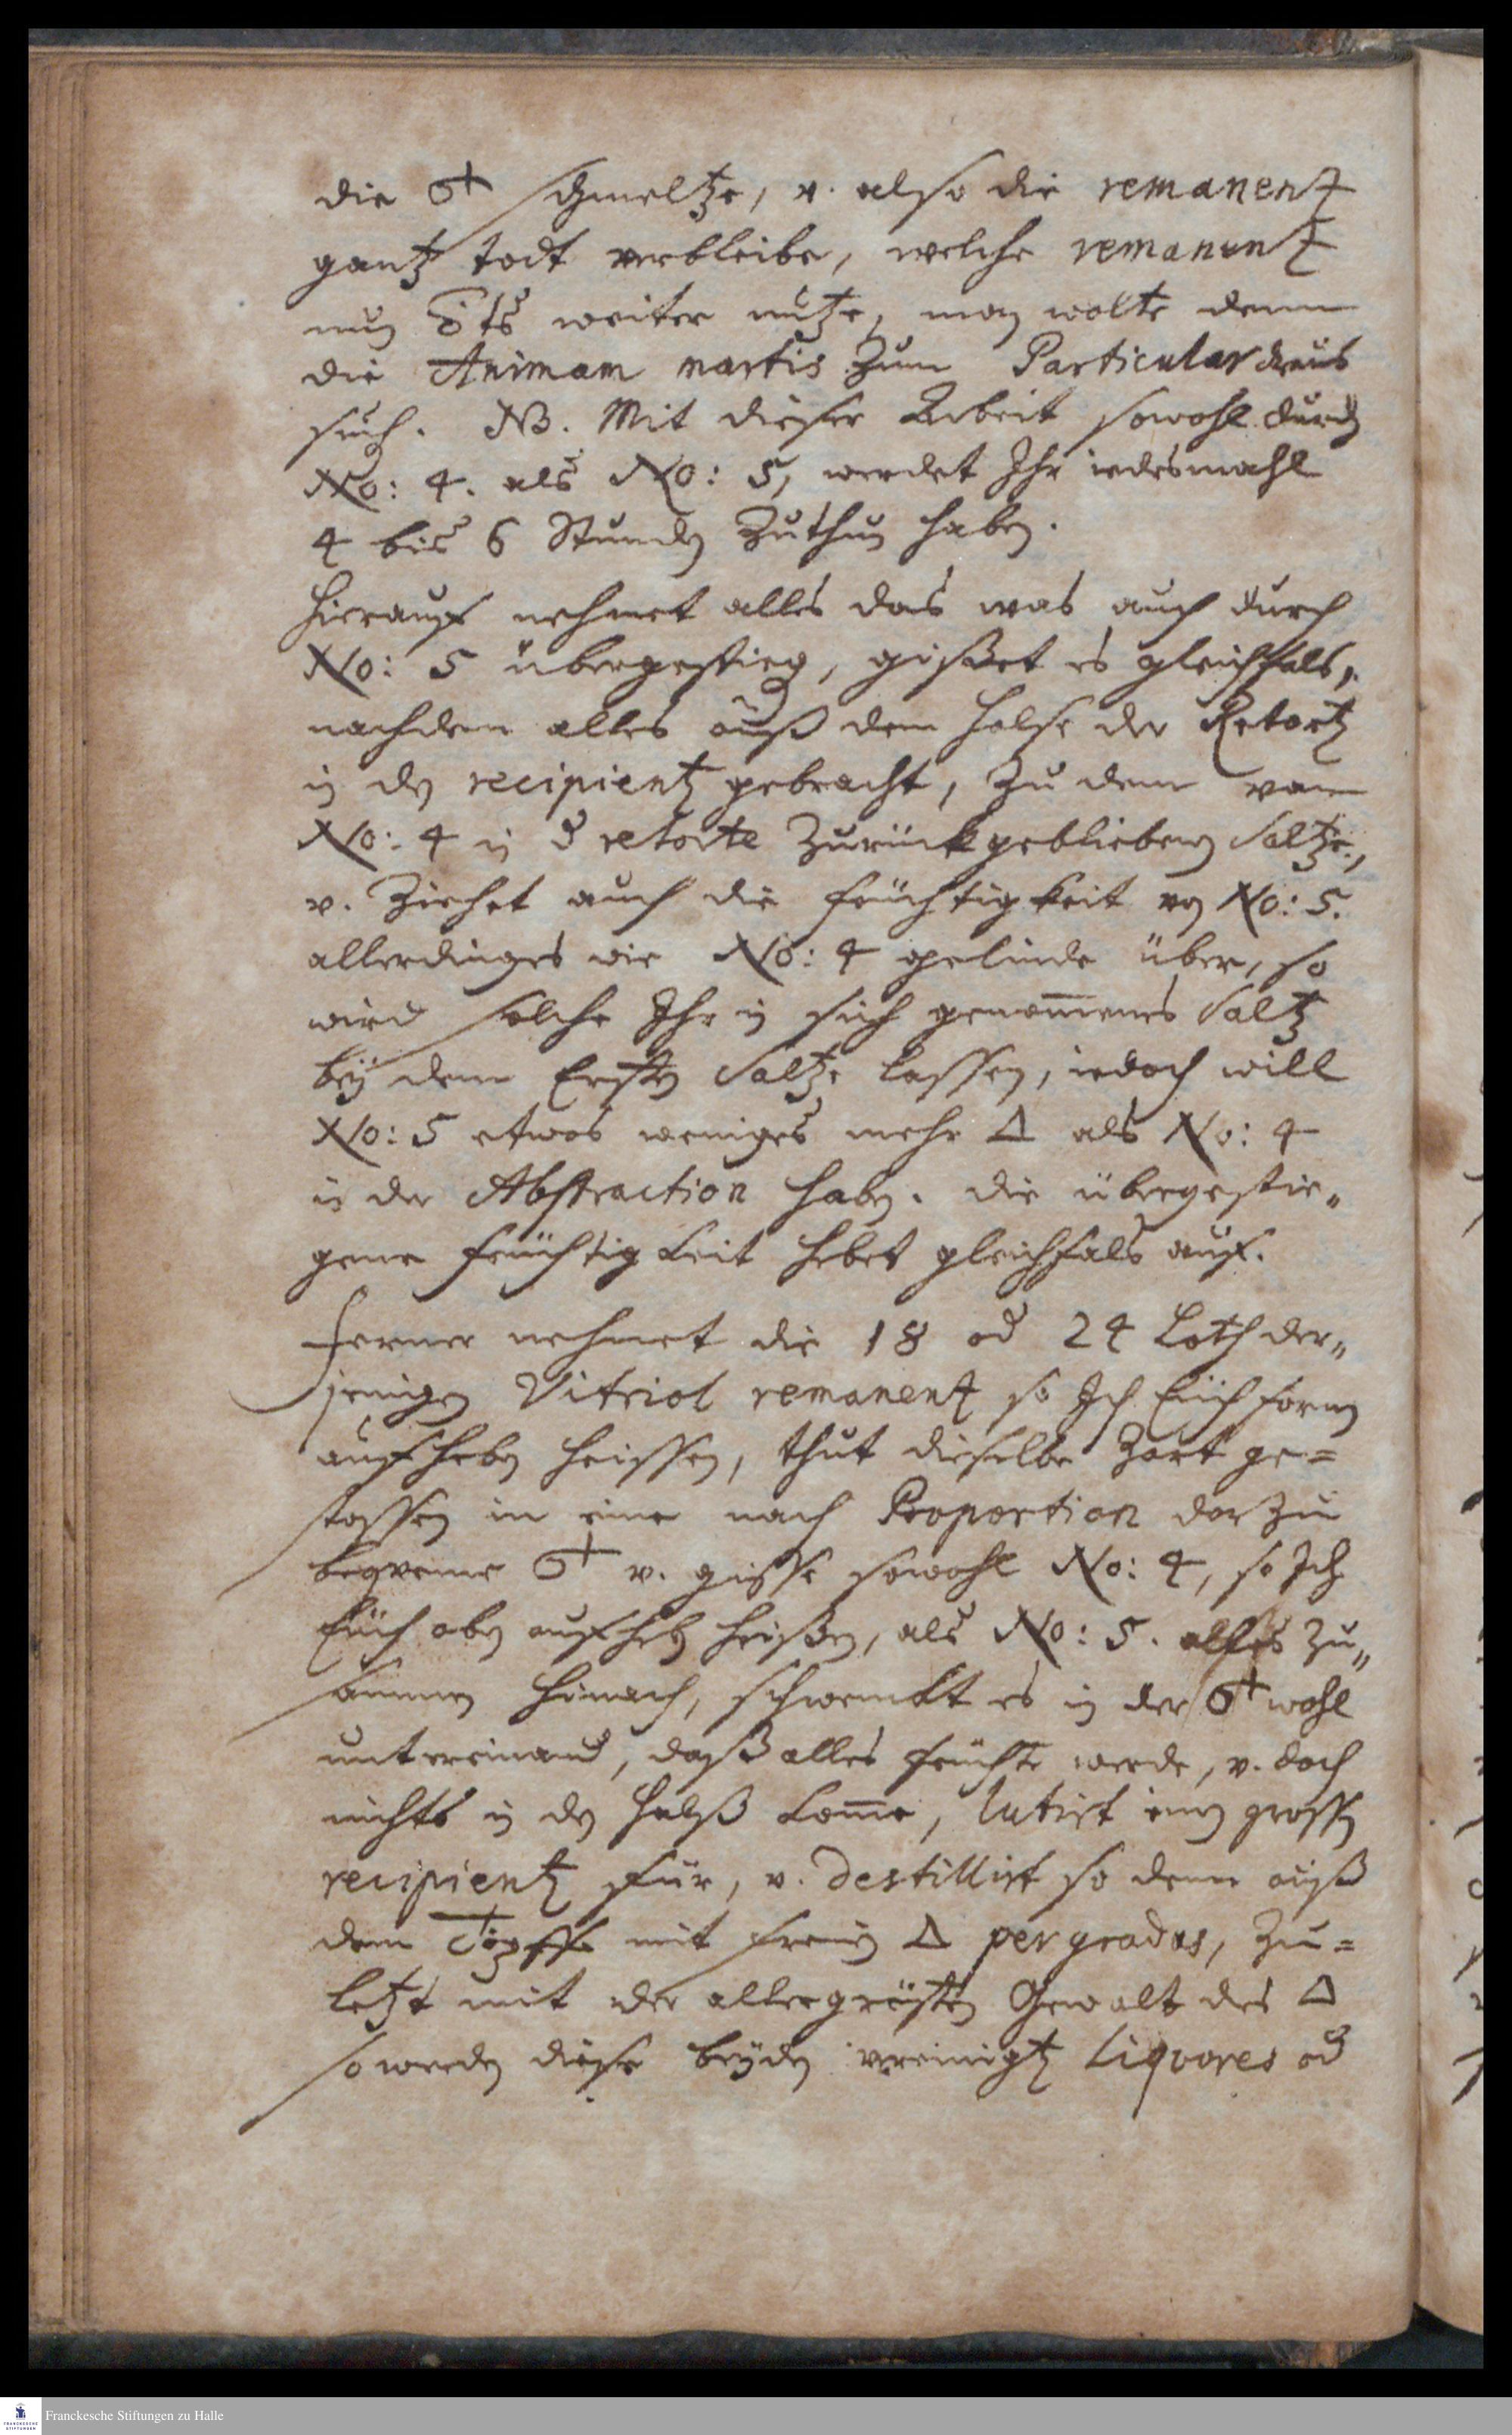 die schmeltze, v. also die remanentz
gantz todt verbleibe, welche remanentz
nun weiter nutze, man wolte denn
die Animam martis zum Particular draus
such. NB. Mit dieser Arbeit sowohl durch
No: 4. als No: 5, werdet Ihr iedesmahl
4 bis 6 Stunden zuthun haben.
Hierauff nehmet alles das was auch durch
No: 5 übergestiegen, gißet es gleichfals,
nachdem alles auß dem Halse der Retortz
in den recipientz gebracht, zu dem von
No: 4 in d retorte zurückgebliebenen Saltze,
v. ziehet auch die feuchtigkeit von No: 5.
allerdinges wie No: 4 gelinde über, so
wird solche Ihr in sich genom̄enes Saltz
bey dem Ersten Saltze lassen, iedoch will
No: 5 etwas weniges mehr 🜂 als No: 4
in der Abstraction haben. die übergestie„
gene feuchtigkeit hebet gleichfals auf.
Ferner nehmet die 18 od 24 Loth der„
jenigen Vitriol remanentz so Ich Euch forn
aufheben heissen, thut dieselbe zart ge=
stossen in eine nach Proportion darzu
beqveme v. gisse sowohl No: 4, so Ich
Euch oben aufheben heißen, als No: 5. alles zu„
sammen hinnach, schwenckt es in der wohl
untereinand, daß alles feuchte werde, v. doch
nichts in den Halß kom̄e, lutirt einen grossen
recipientz für, v. destillirt so denn auß
dem Topffe mit freien 🜂 per gradus, zu=
letzt mit der allergrösten Gewalt des 🜂
so werden diese beyden vereinigte Liqvores od